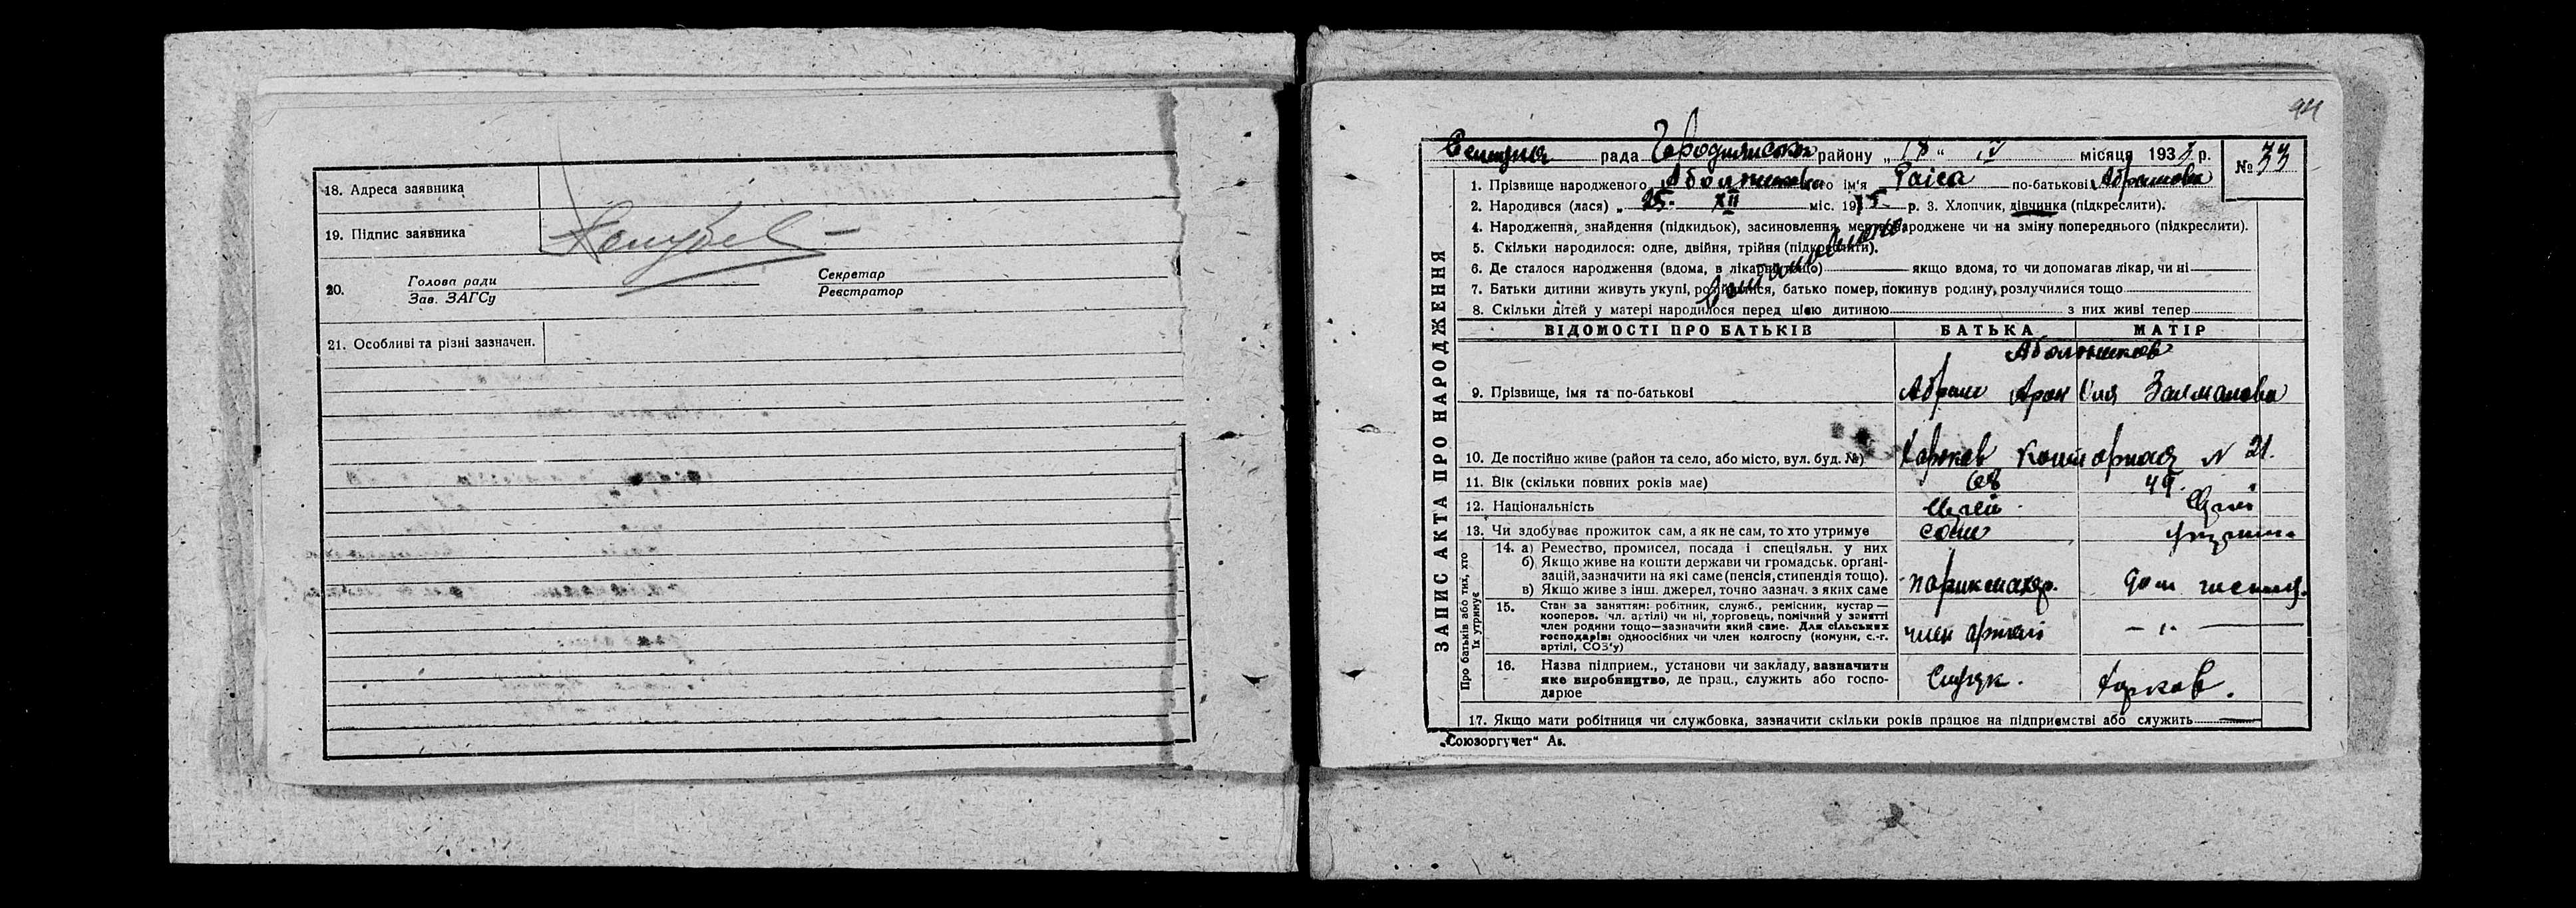 18. Адреса заявника
19. Підпис заявника
20. Голова ради
Зав. ЗАГСу
Секретар
Реєстратор
21. Особливі та різні зазначен.
94
рада району „ 18 “ IV місяця 193 р.
№ 33
ЗАПИС АКТА ПРО НАРОДЖЕННЯ
1. Прізвище народженого ім'я Раіса по-батькові Абрамовна
2. Народився (лася) „ 25. XII міс. 19 р. 3. Хлопчик, дівчинка (підкреслити).
4. Народження, знайдення (підкидьок), засиновлення, мертвонароджене чи на зміну попереднього (підкреслити).
5. Скільки народилося: одне, двійня, трійня (підкреслити).
6. Де сталося народження (вдома, в лікарні тощо) якщо вдома, то чи допомагав лікар, чи ні
7. Батьки дитини живуть укупі, розійшлися, батько помер, покинув родину, розлучилися тощо
8. Скільки дітей у матері народилося перед цією дитиною з них живі тепер
ВІДОМОСТІ ПРО БАТЬКІВ БАТЬКА МАТІР
9. Прізвище, імя та по-батькові Абрам Арон Оля Залмановна
10. Де постійно живе (район та село, або місто, вул. буд. №) Харков N 21.
11. Вік (скільки повних років має) 68 49.
12. Національність
13. Чи здобуває прожиток сам, а як не сам, то хто утримує сам
Про батьків або тих, хто їх утримує
14. а) Ремество, промисел, посада і спеціяльн. у них
б) Якщо живе на кошти держави чи громадськ. організацій, зазначити на які саме (пенсія, стипендія тощо).
в) Якщо живе з інш. джерел, точно зазнач. з яких саме
парикмахер.
15. Стан за заняттям: робітник, служб., ремісник, кустар—
кооперов. чл. артілі) чи ні, торговець, помічний у занятті
член родини тощо—зазначити який саме. Для сільських
господарів: одноосібних чи член колгоспу (комуни, с.-г.
артілі, СОЗ'у)
член артели
16. Назва підприєм., установи чи закладу, зазначити
яке виробництво, де прац., служить або госпо-
дарює
Харков.
17. Якщо мати робітниця чи службовка, зазначити скільки років працює на підприємстві або служить
„Союзоргучет“